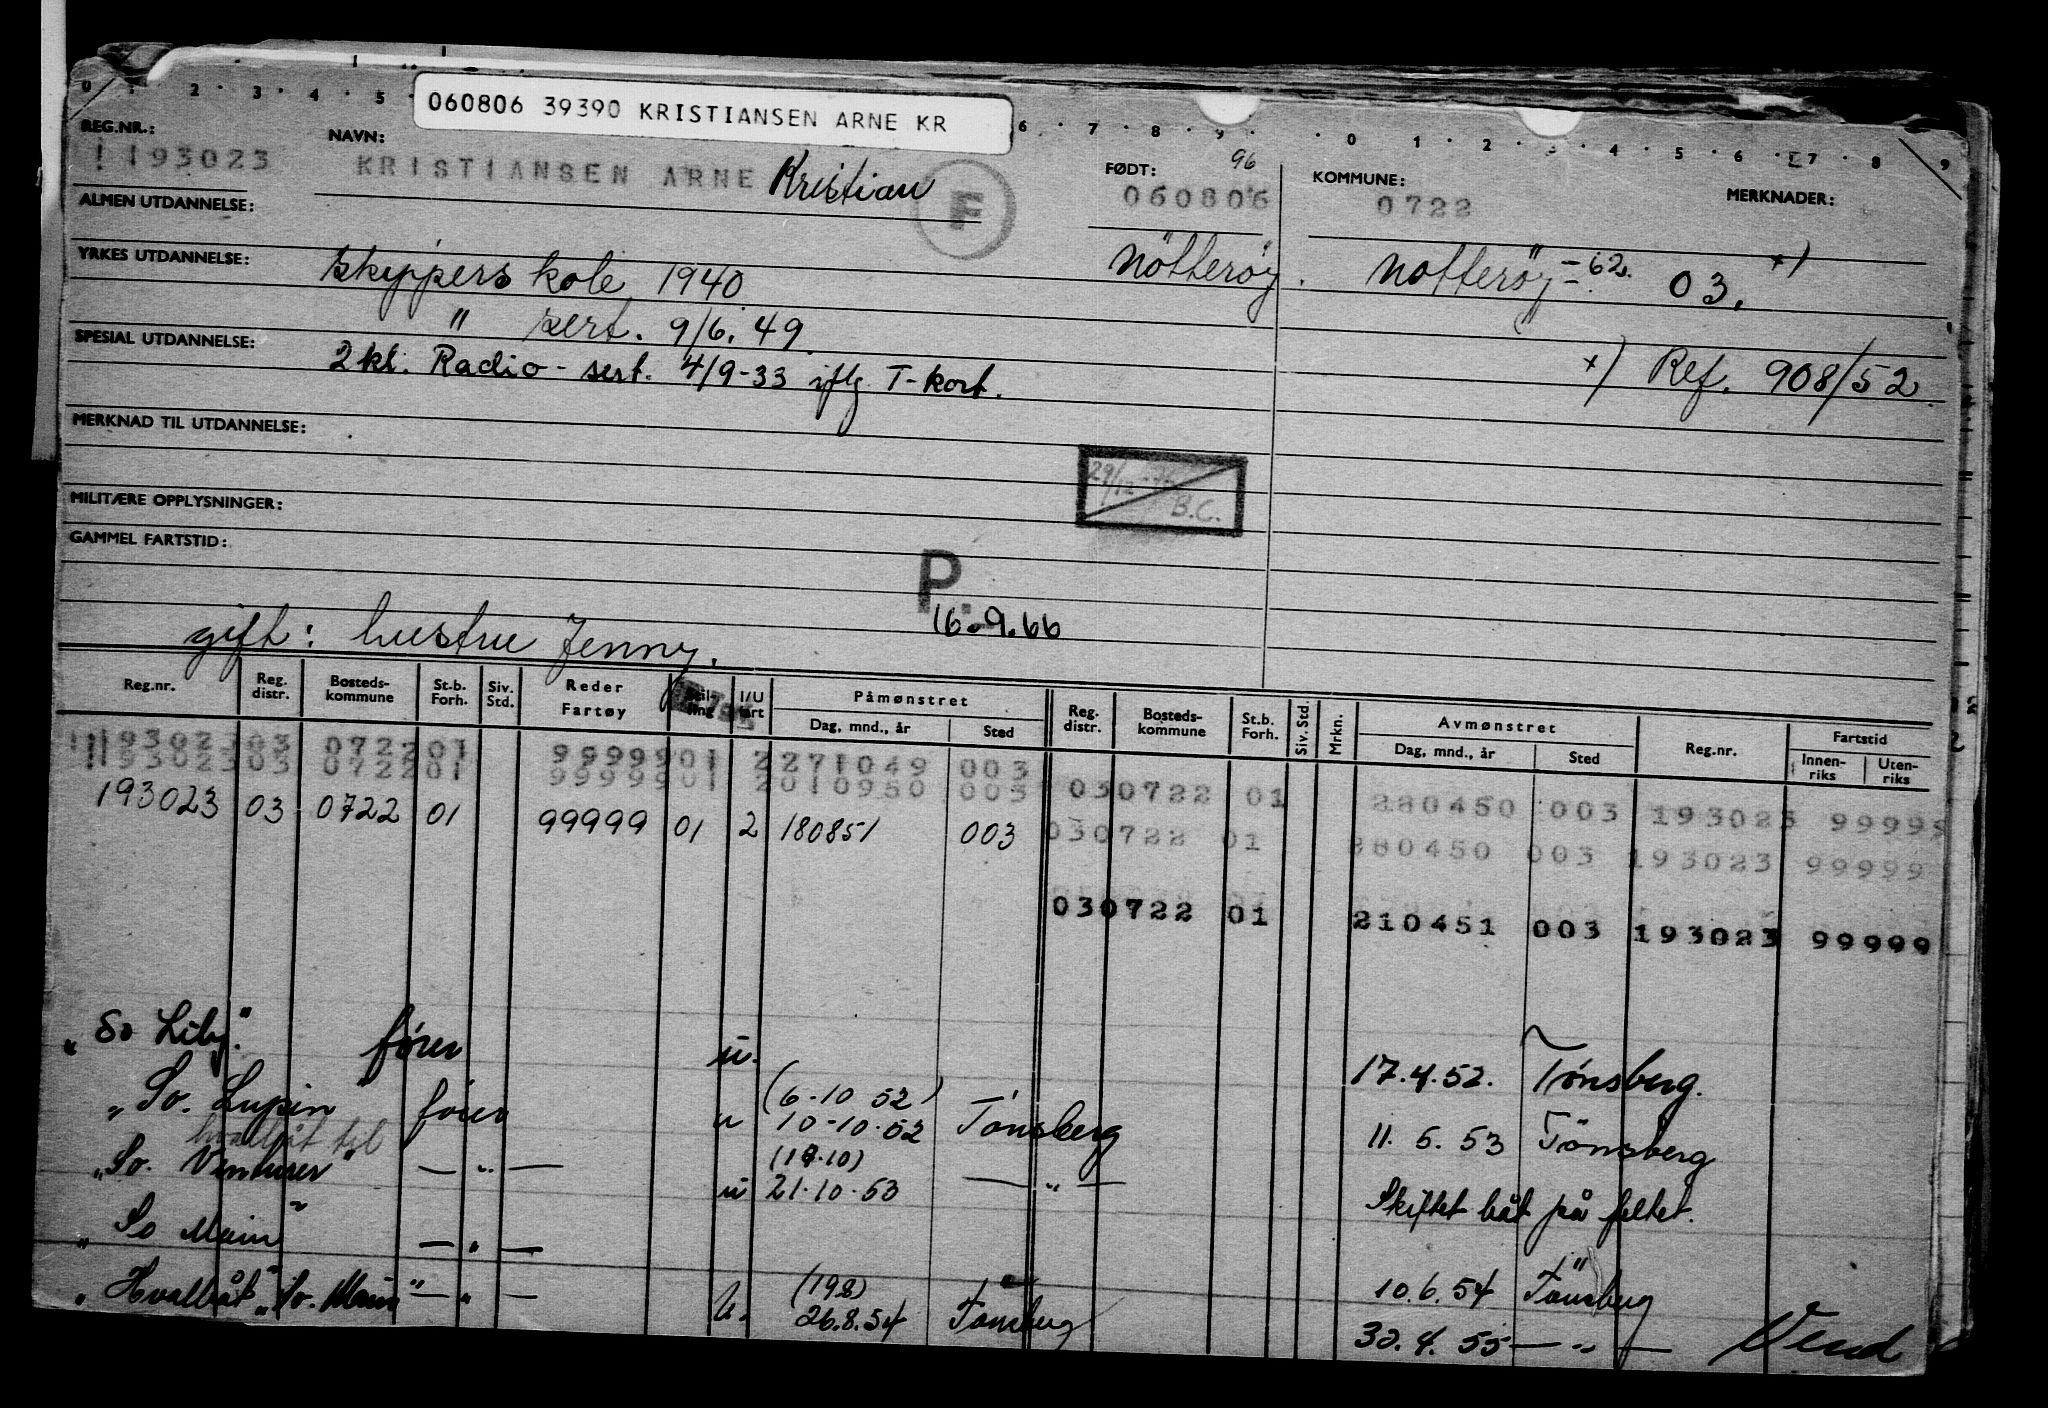 060806 39390 KRISTIANSEN ARNE KR
REG.NR.: 193023 NAVN: KRISTIANSEN ARNE Kristian F FØDT: 96 060806 KOMMUNE: 0722 MERKNADER:
ALMEN UTDANNELSE:
YRKES UTDANNELSE: Skippers kole 1940 Nötteröy. Nötteröy -62. 03. x)
" sert. 9/6.49
SPESIAL UTDANNELSE: 2 kl. Radio-sert. 4/9-33 iflg T-kort. x) Ref. 908/52
MERKNAD TIL UTDANNELSE:
29/12 B.C.
MILITÆRE OPPLYSNINGER:
GAMMEL FARTSTID:
P. 16.9.66
gift: hustru Jenny.
Reg.nr. Reg. distr. Bosteds-kommune St.b. Forh. Siv. Std. Reder Fartøy Stilling I/U fart Påmønstret Dag, mnd., år Sted Reg. distr. Bosteds-kommune St.b. Forh. Siv. Std. Mrkn. Avmønstret Dag, mnd., år Sted Reg.nr. Fartstid Innen-riks Uten-riks
193023 03 0722 01 99999 01 2 271049 003
193023 03 0722 01 99999 01 2 010950 003 030722 01 280450 003 193023 99999
193023 03 0722 01 99999 01 2 180851 003 030722 01 280450 003 193023 99999
030722 01 210451 003 193023 99999
"So Lily." fører u. 17.4.52. Tønsberg.
"So. Lupin fører u (6-10 52) 10-10.52 Tønsberg 11.5.53 Tönsberg
hvalbåt til
"So. Venturer" — " — u 21.10.53 — " — Skiftet båt på feltet.
"So Main" — " — 10.6.54 Tönsberg
"Hvalbåt "So. Main" — " — u. (19.8) 26.8.54 Tønsberg 30.4.55 — " — Vend